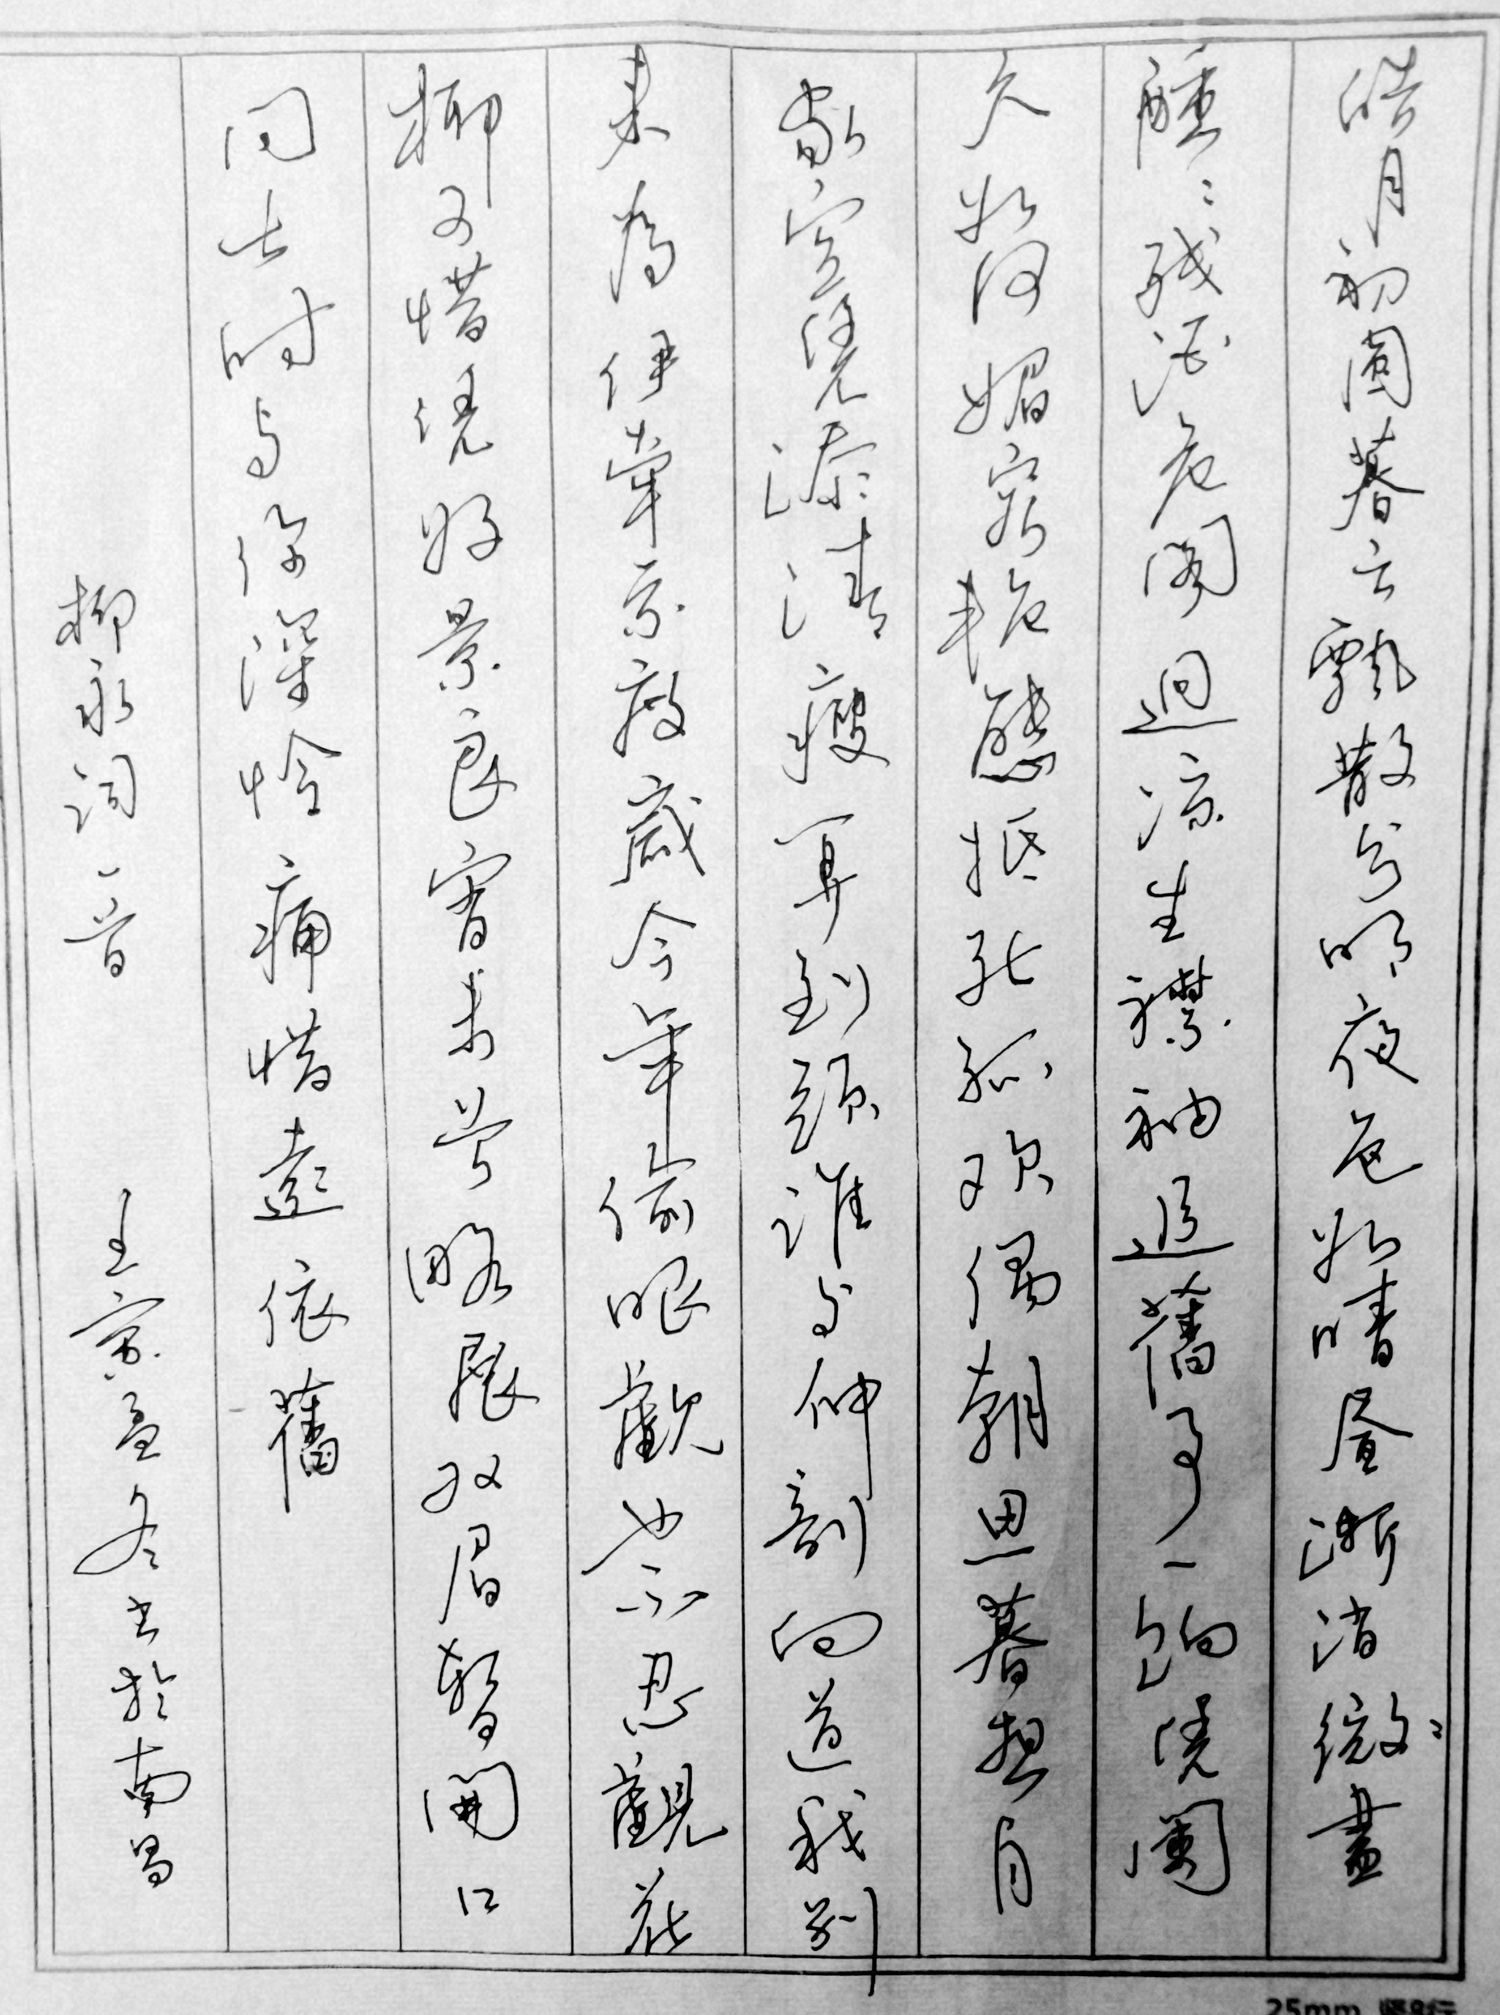 皓月初圆暮云飘散分明夜色如晴昼渐消微盡
醺々残酒危阁迥凉生襟袖追舊事一饷凭阑
久如何媚容艳態抵死孤欢偶朝思暮想自
家空凭添清瘦算到頭谁与伸剖向道我别
来为伊牵系度歲今年偷眼觀也不忍觀花
柳可惜凭好景良宵未曾略展双眉暂開口
问甚时与你深怜痛惜還依舊
柳永词一首 王 冬书於南昌
25mm